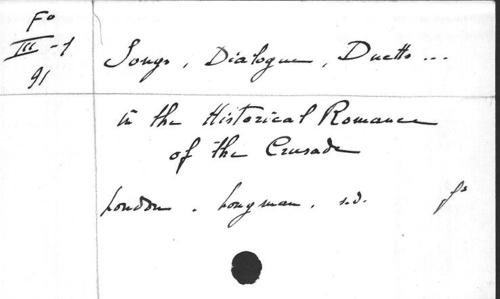 Fo
III-1
91
Songs, Dialogue, Duetts...
in the Historical Romance
of the Crusade
London. Longman. s.d. fo